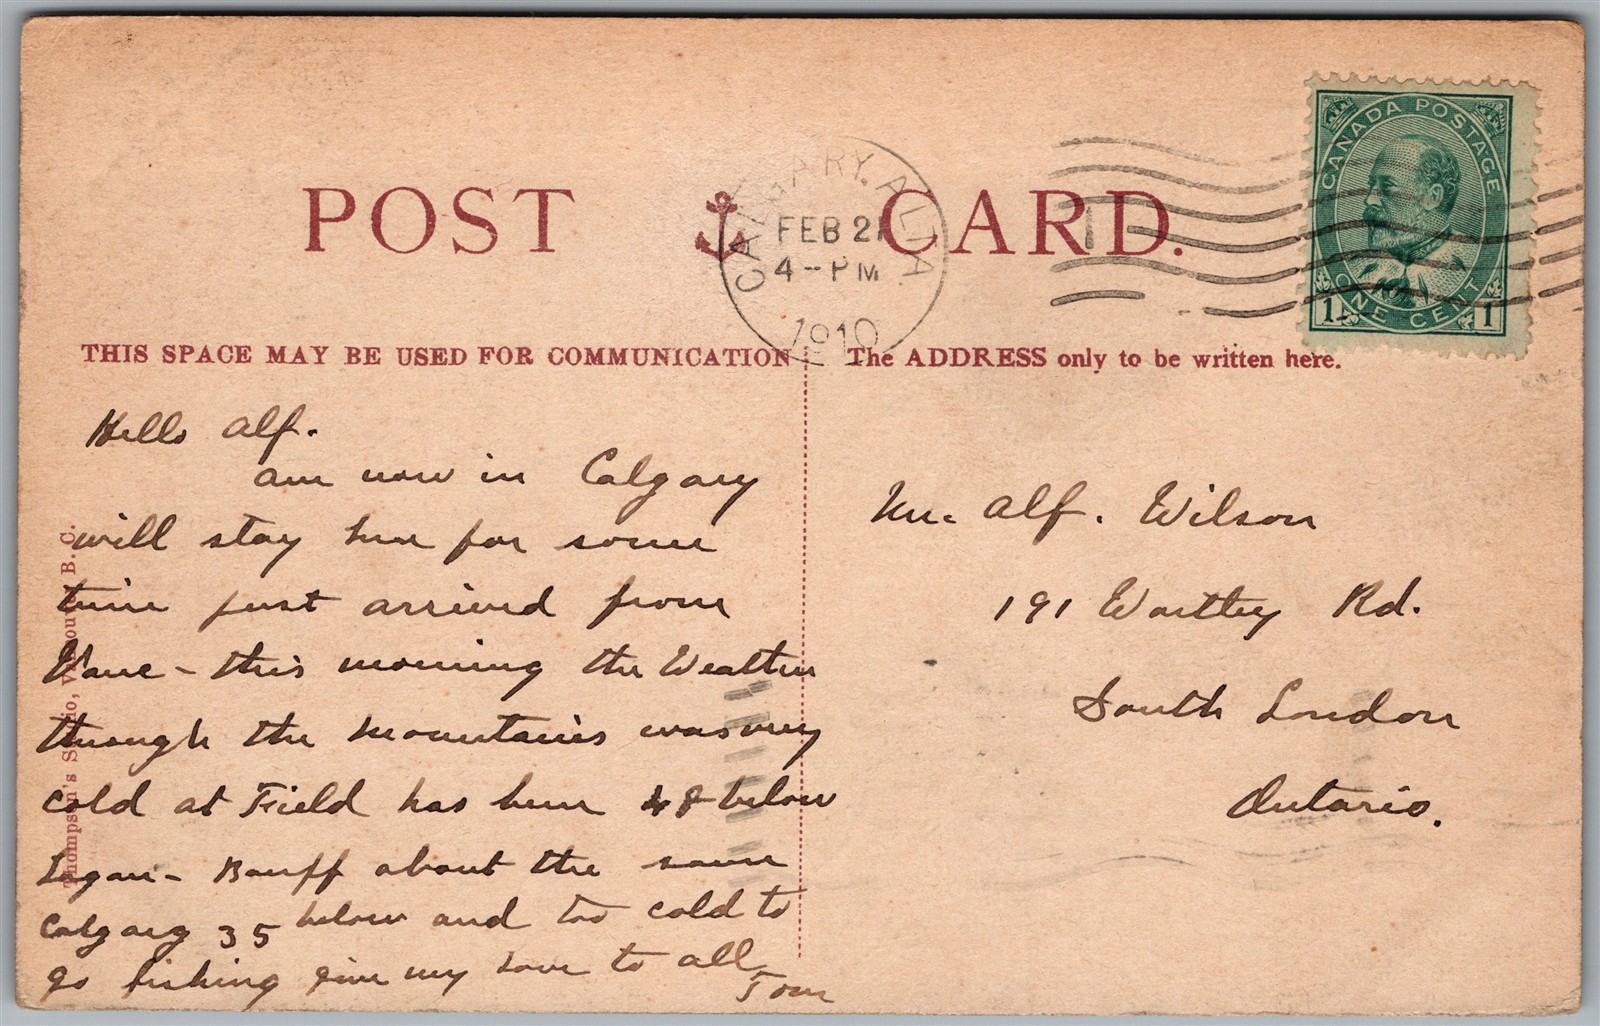 POST CARD.
CALGARY. ALTA.
FEB 21
4-PM
1910
CANADA POSTAGE
ONE CENT
1 1
THIS SPACE MAY BE USED FOR COMMUNICATION
The ADDRESS only to be written here.
Hello Alf.
am now in Calgary
will stay here for some
time just arrived from
Vanc - this morning the Weather
through the Mountains was very
cold at Field has been 48 below
Laggan - Banff about the same
Calgary 35 below and too cold to
go fishing give my love to all
Tom
Mr. Alf. Wilson
191 Wortley Rd.
South London
Ontario.
Thompson's Studio, Vancouver B. C.